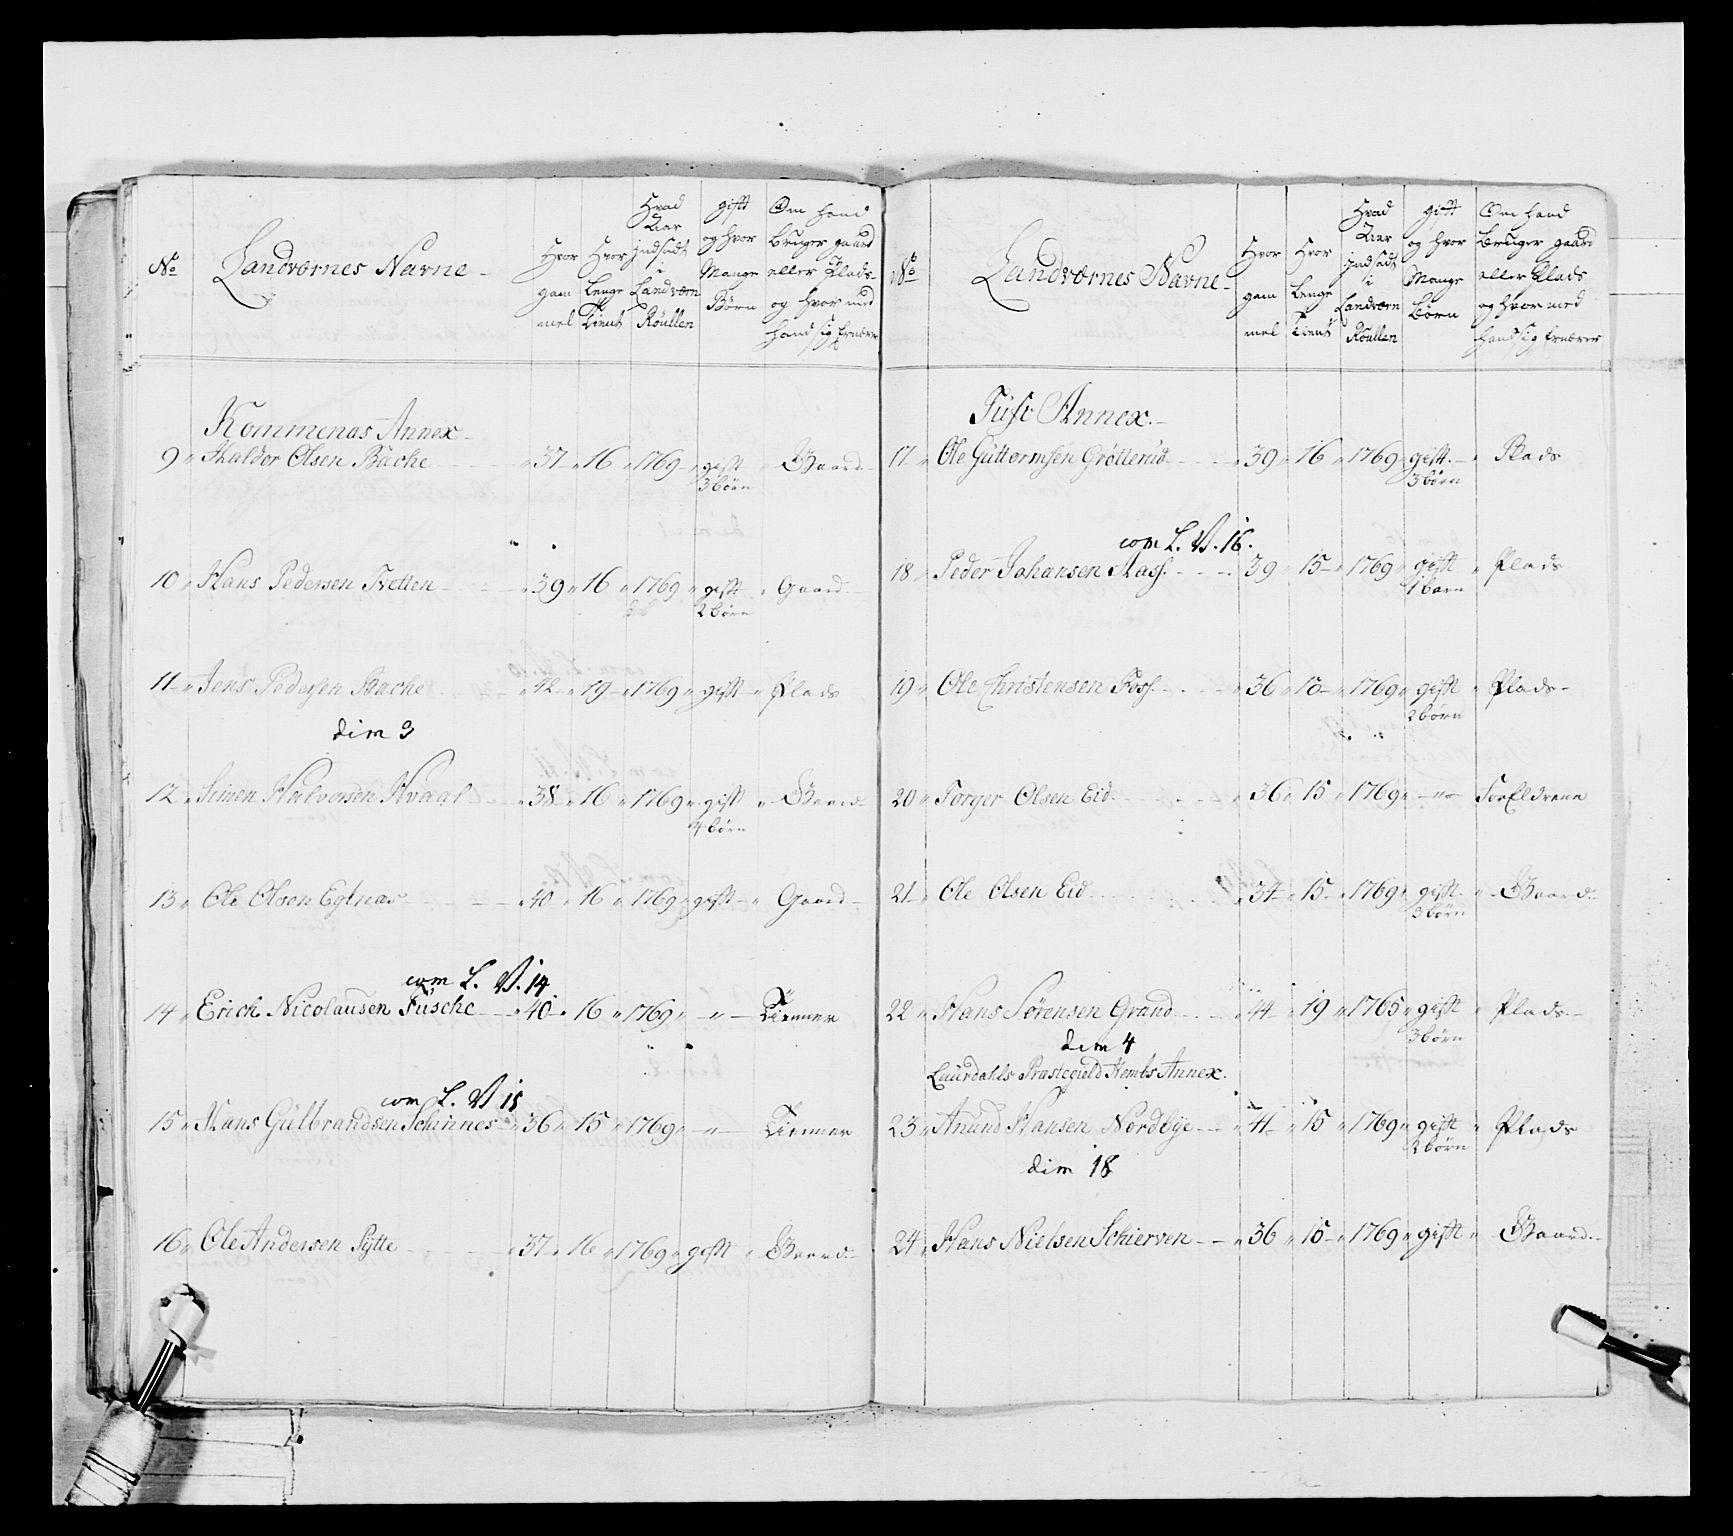 No
Landværnes Navne
Hvor gam mel
Hvor Lenge Tient
Hvad Aar Indsadt i Landværn Roullen
gift og hvor Mange Börn
Om hand Bruger gaard eller Plads og hvor med hand sig Ernærer
Kommenas Annex
9 Haldor Olsen Bache 37 16 1769 gift Gaard
3 börn
10 Hans Pedersen Tvetten 39 16 1769 gift Gaard
2 börn
11 Jens Pedersen Bache 42 19 1769 gift Plads
dim 3
12 Simen Halvorsen Hvaal 38 16 1769 gift Gaard
4 börn
13 Ole Olsen Egtnas 40 16 1769 gift Gaard
com L. V. 14
14 Erich Nicolausen Fusche 40 16 1769 -"- Tienner
com L. V 15
15 Hans Gulbrandsen Schinnes 36 15 1769 -"- Tienner
16 Ole Andersen Pytte 37 16 1769 gift Gaard
No
Landværnes Navne
Hvor gam mel
Hvor Lenge Tient
Hvad Aar Indsadt i Landværn Roullen
gift og hvor Mange Börn
Om hand Bruger gaard eller Plads og hvor med hand sig Ernærer
Annex
17 Ole Guttormsen Gröttenid 39 16 1769 gift Plads
3 börn
com L. V. 16.
18 Peder Johansen Aass 39 15 1769 gift Plads
1 barn
19 Ole Christensen Foss 36 15 1769 gift Plads
2 börn
20 Torger Olsen Eid 36 15 1769 -"- Forældrene
21 Ole Olsen Eid 34 15 1769 gift Gaard
3 börn
22 Hans Sörensen Grand 44 19 1765 gift Plads
3 börn
dim 4
Laurdahls Præstegield Hembs Annex
23 Anund Hansen Nordbye 41 15 1769 gift Plads
2 börn
dim 18
24 Hans Nielsen Schierven 36 15 1769 gift Gaard